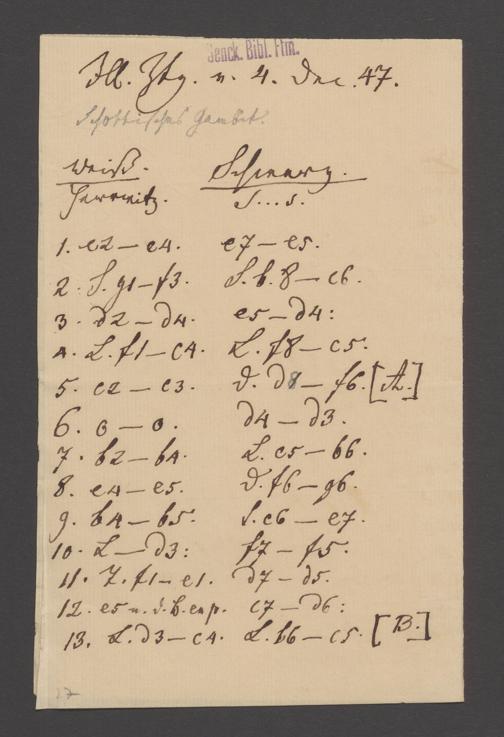 Senck. Bibl. Ffm.
Ill. Ztg. v. 4. Dec. 47.
Schottisches Gambit.
Weiß. Schwarz.
Harrwitz. S...s.
1. e2 — e4. e7 — e5.
2. S. g1 — f3. S. b. 8 — c6.
3. d2 — d4. e5 — d4:
4. L. f1 — c4. L. f8 — c5.
5. c2 — c3. D. d8 — f6. [A.]
6. o — o. d4 — d3.
7. b2 — b4. L. c5 — b6.
8. e4 — e5. D. f6 — g6.
9. b4 — b5. S. c6 — e7.
10. L — d3: f7 — f5.
11. T. f1 — e1. d7 — d5.
12. e5 n. d. B. en p. c7 — d6:
13. L. d3 — c4. L. b6 — c5. [B.]
27